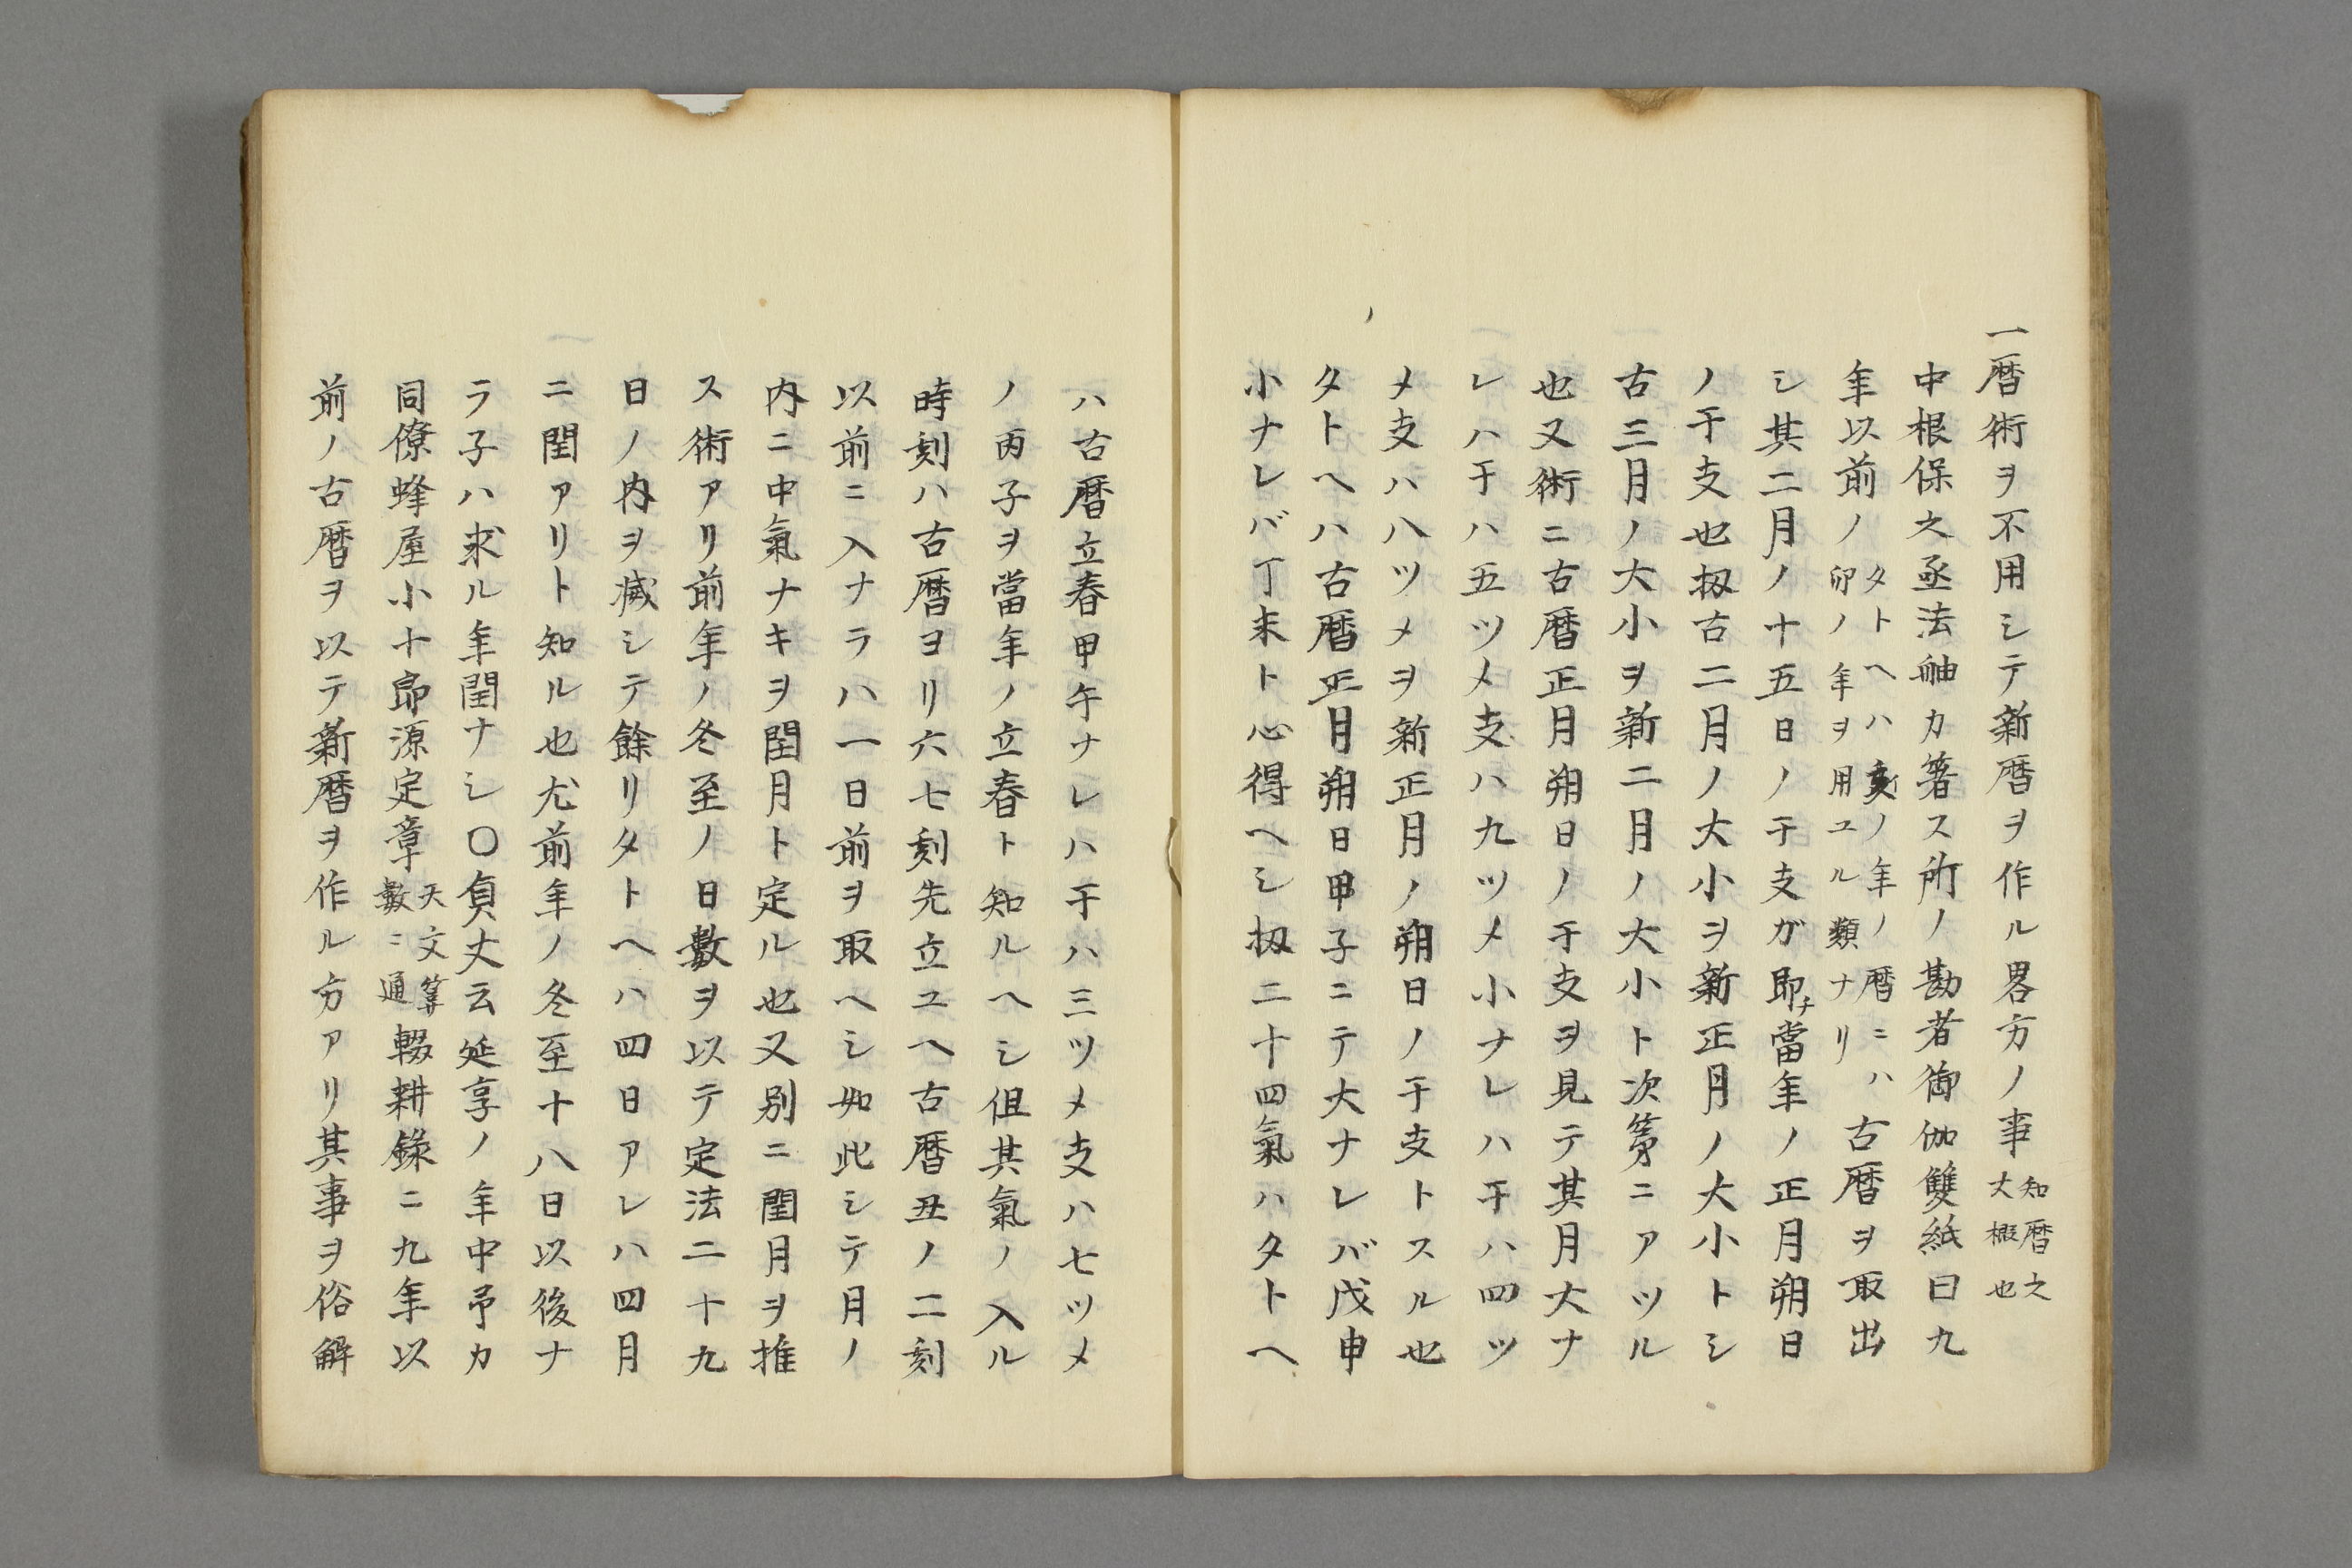 一暦術ヲ不用シテ新暦ヲ作ル畧方ノ事知暦之大概也
中根保之丞法舳カ著ス所ノ勘者御伽雙紙曰九
年以前ノタトヘハ亥ノ年ノ暦ニハ卯ノ年ヲ用ユル類ナリ古暦ヲ取出
シ其二月ノ十五日ノ干支ガ即チ當年ノ正月朔日
ノ干支也扨古二月ノ大小ヲ新正月ノ大小トシ
古三月ノ大小ヲ新二月ノ大小ト次第ニアツル
也又術ニ古暦正月朔日ノ干支ヲ見テ其月大ナ
レハ干ハ五ツメ支ハ九ツメ小ナレハ干ハ四ツ
メ支ハ八ツメヲ新正月ノ朔日ノ干支トスル也
タトヘハ古暦正月朔日甲子ニテ大ナレバ戊申
小ナレバ丁未ト心得ヘシ扨二十四氣ハタトヘ
ハ古暦立春甲午ナレハ干ハ三ツメ支ハ七ツメ
ノ丙子ヲ當年ノ立春ト知ルヘシ但其氣ノ入ル
時刻ハ古暦ヨリ六七刻先立ユヘ古暦丑ノ二刻
以前ニ入ナラハ一日前ヲ取ヘシ如此シテ月ノ
内ニ中氣ナキヲ閏月ト定ル也又別ニ閏月ヲ推
ス術アリ前年ノ冬至ノ日數ヲ以テ定法二十九
日ノ内ヲ減シテ餘リタトヘハ四日アレハ四月
ニ閏アリト知ル也尤前年ノ冬至十八日以後ナ
ラ子ハ求ル年閏ナシ〇貞丈云延享ノ年中予カ
同僚蜂屋小十郎源定章天文算數ニ通輟耕錄ニ九年以
前ノ古暦ヲ以テ新暦ヲ作ル方アリ其事ヲ俗解